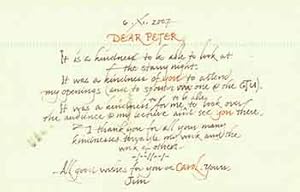 6. XI. 2007
DEAR PETER
It is a kindness to be able to look at
the starry night.
It was a kindness of you to attend
my openings (and to sponsor one @ the GTU).
to be able
It was a kindness for me, to look over
the audience @ my lecture and see you there.
I thank you for all your many
kindnesses towards my work and the
work of others.
All good wishes for you & Carol. Yours,
Jim